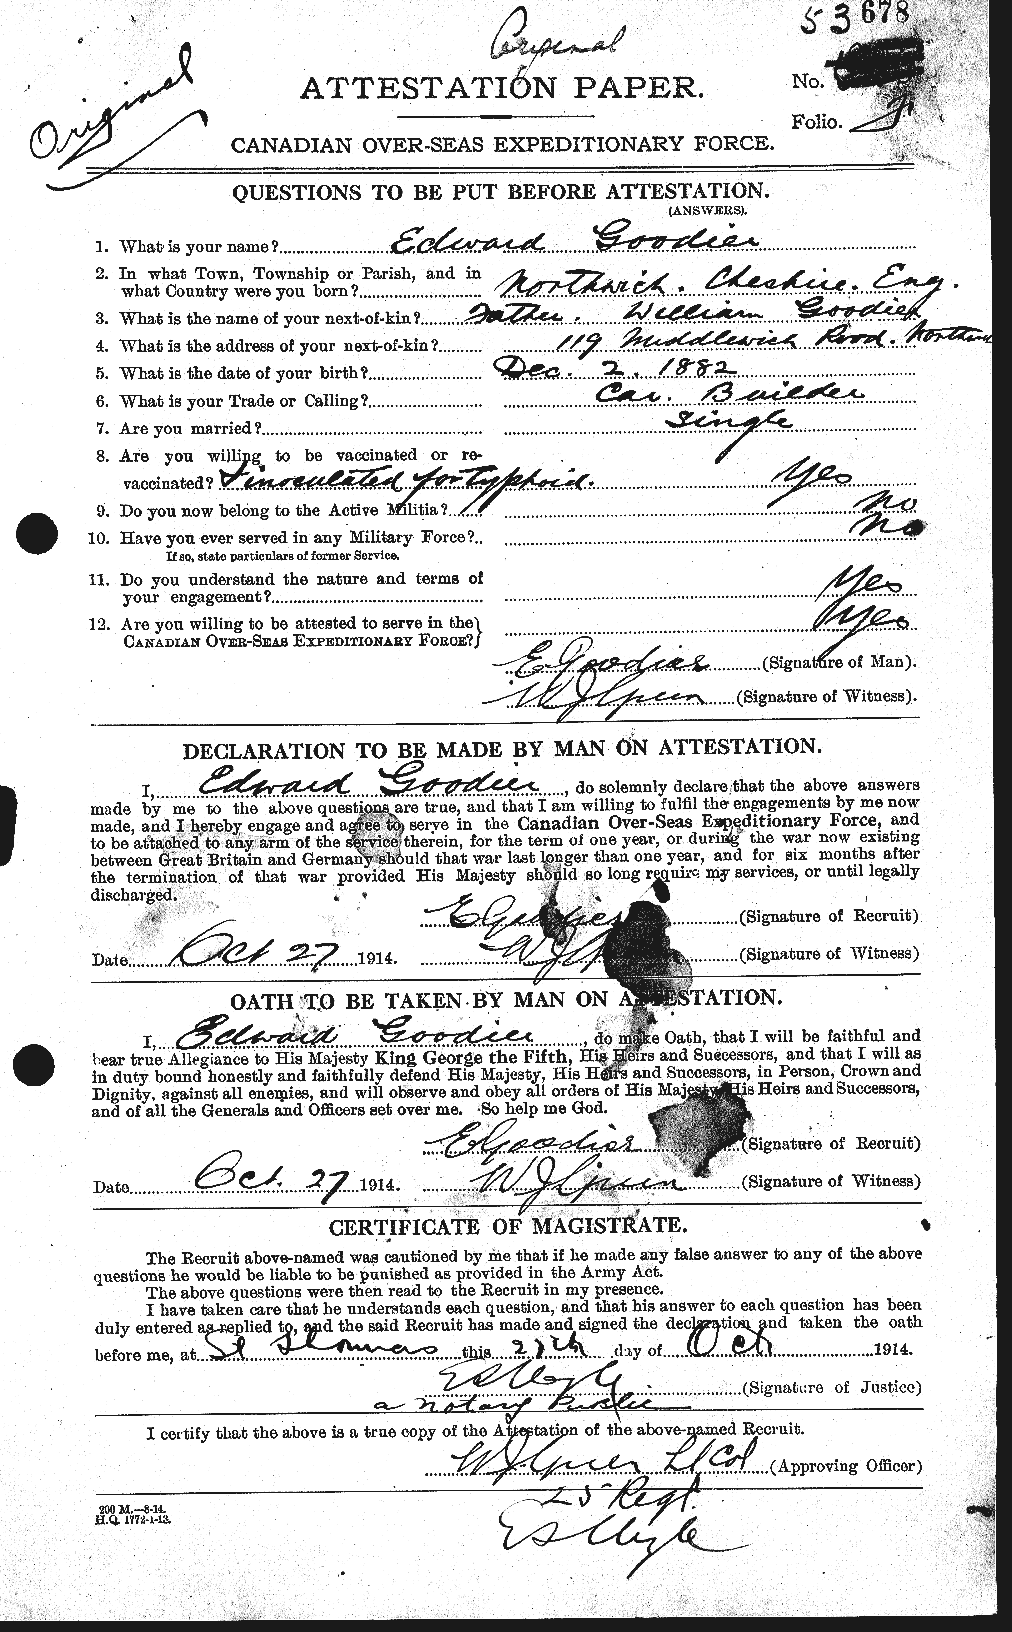 53678
Original
Original
ATTESTATION PAPER.
No.
Folio.
CANADIAN OVER-SEAS EXPEDITIONARY FORCE.
QUESTIONS TO BE PUT BEFORE ATTESTATION.
(ANSWERS).
1. What is your name? Edward Goodier
2. In what Town, Township or Parish, and in
what Country were you born? Northwich. Cheshire. Eng.
3. What is the name of your next-of-kin? Father. William Goodier
4. What is the address of your next-of-kin? 119 Middlewich Road. Northwich
5. What is the date of your birth? Dec. 2. 1882
6. What is your Trade or Calling? Car. Builder
7. Are you married? Single
8. Are you willing to be vaccinated or re-
vaccinated? & inoculated for typhoid. Yes
9. Do you now belong to the Active Militia? No
10. Have you ever served in any Military Force? No
If so, state particulars of former Service.
11. Do you understand the nature and terms of
your engagement? Yes
12. Are you willing to be attested to serve in the
CANADIAN OVER-SEAS EXPEDITIONARY FORCE? Yes
E Goodier (Signature of Man).
(Signature of Witness).
DECLARATION TO BE MADE BY MAN ON ATTESTATION.
I, Edward Goodier, do solemnly declare that the above answers
made by me to the above questions are true, and that I am willing to fulfil the engagements by me now
made, and I hereby engage and agree to serve in the Canadian Over-Seas Expeditionary Force, and
to be attached to any arm of the service therein, for the term of one year, or during the war now existing
between Great Britain and Germany should that war last longer than one year, and for six months after
the termination of that war provided His Majesty should so long require my services, or until legally
discharged.
E Goodier (Signature of Recruit)
Date Oct 27 1914. (Signature of Witness)
OATH TO BE TAKEN BY MAN ON ATTESTATION.
I, Edward Goodier, do make Oath, that I will be faithful and
bear true Allegiance to His Majesty King George the Fifth, His Heirs and Successors, and that I will as
in duty bound honestly and faithfully defend His Majesty, His Heirs and Successors, in Person, Crown and
Dignity, against all enemies, and will observe and obey all orders of His Majesty, His Heirs and Successors,
and of all the Generals and Officers set over me. So help me God.
E Goodier (Signature of Recruit)
Date Oct. 27 1914. (Signature of Witness)
CERTIFICATE OF MAGISTRATE.
The Recruit above-named was cautioned by me that if he made any false answer to any of the above
questions he would be liable to be punished as provided in the Army Act.
The above questions were then read to the Recruit in my presence.
I have taken care that he understands each question, and that his answer to each question has been
duly entered as replied to, and the said Recruit has made and signed the declaration and taken the oath
before me, at St Thomas this 27th day of Oct 1914.
(Signature of Justice)
a Notary Public
I certify that the above is a true copy of the Attestation of the above-named Recruit.
Lt Col (Approving Officer)
25 Regt.
200 M.—8-14.
H.Q. 1772-1-13.